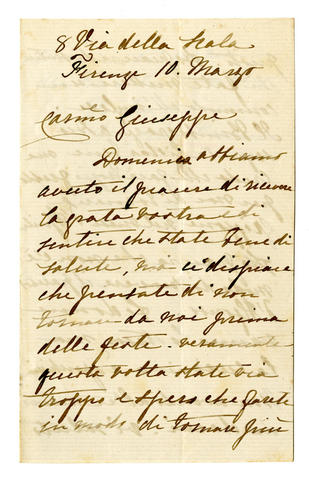 8 Via della Scala
Firenze 10. Marzo
Carmo Giuseppe
Domenica abbiamo
avuto il piacere di ricevere
la grata vostra e di
sentire che state bene di
salute, ma ci dispiace
che pensate di non
tornare da noi prima
delle feste. veramente
questa volta state via
troppo e spero che farete
in modo di tornare più